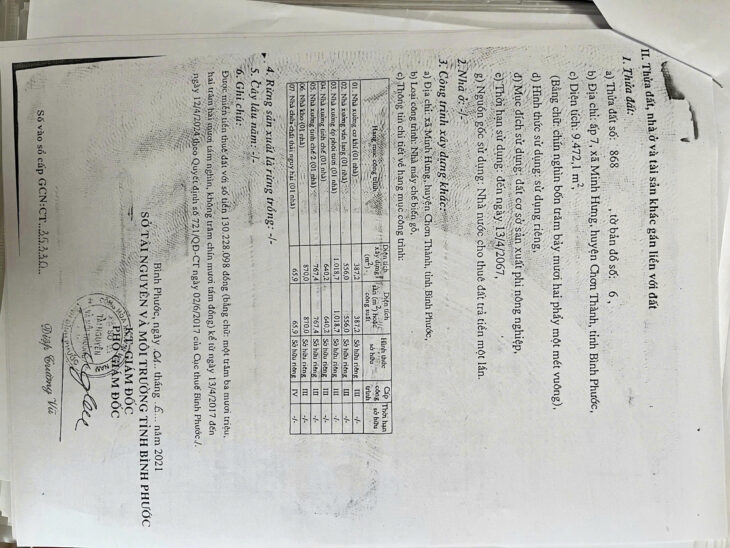 II. Thửa đất, nhà ở và tài sản khác gắn liền với đất
1. Thửa đất:
a) Thửa đất số: 868 , tờ bản đồ số: 6 ,
b) Địa chỉ: ấp 7, xã Minh Hưng, huyện Chơn Thành, tỉnh Bình Phước,
c) Diện tích: 9.472,1 m²,
(Bằng chữ: chín nghìn bốn trăm bảy mươi hai phẩy một mét vuông),
d) Hình thức sử dụng: sử dụng riêng,
đ) Mục đích sử dụng: đất cơ sở sản xuất phi nông nghiệp,
e) Thời hạn sử dụng: đến ngày 13/4/2067,
g) Nguồn gốc sử dụng: Nhà nước cho thuê đất trả tiền một lần.
2. Nhà ở: -/-
3. Công trình xây dựng khác:
a) Địa chỉ: xã Minh Hưng, huyện Chơn Thành, tỉnh Bình Phước,
b) Loại công trình: Nhà máy chế biến gỗ,
c) Thông tin chi tiết về hạng mục công trình:
Hạng mục công trình Diện tích xây dựng (m²) Diện tích sàn (m²) hoặc công suất Hình thức sở hữu Cấp công trình Thời hạn sở hữu
01. Nhà xưởng cơ khí (01 nhà) 387,2 387,2 Sở hữu riêng III -/-
02. Nhà xưởng văn lạng (01 nhà) 556,0 556,0 Sở hữu riêng III -/-
03. Nhà xưởng ép phôi tươi (01 nhà) 1.018,7 1.018,7 Sở hữu riêng III -/-
04. Nhà xưởng tinh chế (01 nhà) 640,2 640,2 Sở hữu riêng III -/-
05. Nhà xưởng tinh chế 2 (01 nhà) 767,4 767,4 Sở hữu riêng III -/-
06. Nhà kho (01 nhà) 870,0 870,0 Sở hữu riêng III -/-
07. Nhà chứa chất thải nguy hại (01 nhà) 65,9 65,9 Sở hữu riêng IV -/-
4. Rừng sản xuất là rừng trồng: -/-
5. Cây lâu năm: -/-
6. Ghi chú:
Được miễn tiền thuê đất với số tiền 130.228.098 đồng (bằng chữ: một trăm ba mươi triệu,
hai trăm hai mươi tám nghìn, không trăm chín mươi tám đồng) kể từ ngày 13/4/2017 đến
ngày 12/4/2024 theo Quyết định số 721/QĐ-CT ngày 02/6/2017 của Cục thuế Bình Phước./.
Bình Phước, ngày 04 tháng 6 năm 2021
SỞ TÀI NGUYÊN VÀ MÔI TRƯỜNG TỈNH BÌNH PHƯỚC
KT. GIÁM ĐỐC
PHÓ GIÁM ĐỐC
Điệp Trương Vũ
Số vào sổ cấp GCN:CT